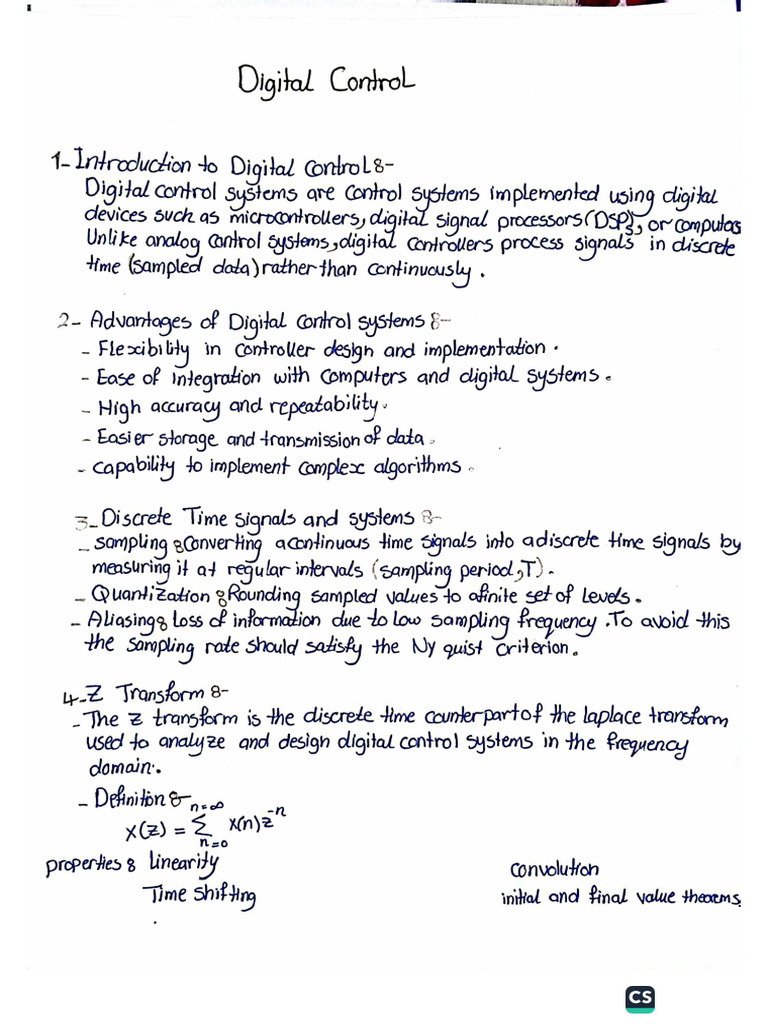 Digital Control
1- Introduction to Digital Control :-
Digital control systems are control systems implemented using digital
devices such as microcontrollers, digital signal processors (DSP), or computas
Unlike analog control systems, digital controllers process signals in discrete
time (sampled data) rather than continuously.
2- Advantages of Digital Control systems :-
- Flexibility in controller design and implementation.
- Ease of integration with computers and digital systems.
- High accuracy and repeatability.
- Easier storage and transmission of data.
- capability to implement complex algorithms.
3- Discrete Time signals and systems :-
- sampling : Converting a continuous time signals into a discrete time signals by
measuring it at regular intervals (sampling period, T).
- Quantization : Rounding sampled values to a finite set of levels.
- Aliasing : Loss of information due to low sampling frequency. To avoid this
the sampling rate should satisfy the Ny quist criterion.
4- Z Transform :-
- The Z transform is the discrete time counterpart of the laplace transform
used to analyze and design digital control systems in the frequency
domain.
- Definition :-
X(z) = Σ_{n=0}^{n=∞} x(n) z^{-n}
properties : linearity convolution
Time shifting initial and final value theorems.
CS